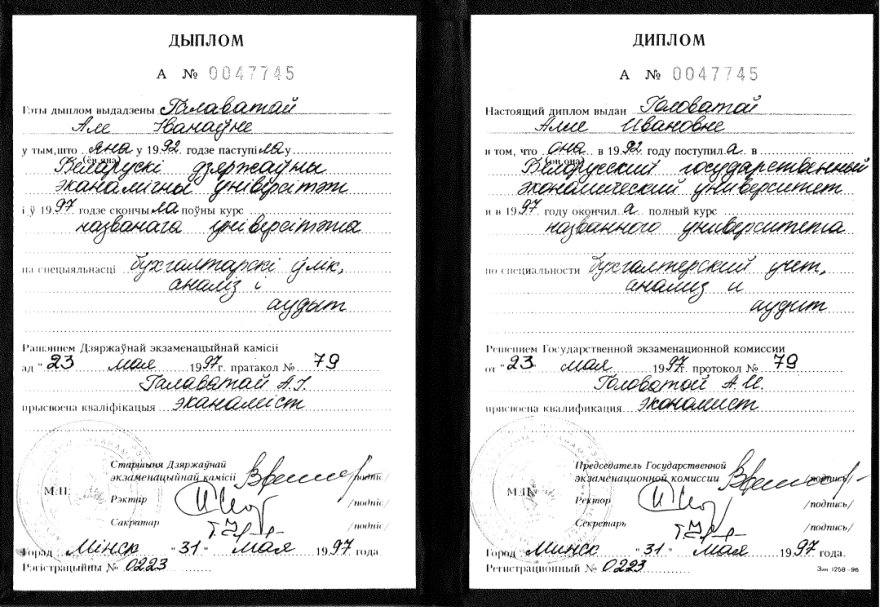 ДЫПЛОМ
А № 0047745
Гэты дыплом выдадзены Галаватай
Але Іванаўне
у тым, што яна у 1992 годзе паступіла у
(ён, яна)
Беларускі дзяржаўны
эканамічны ўніверсітэт
і ў 1997 годзе скончыла поўны курс
названага ўніверсітэта
на спецыяльнасці бухгалтарскі ўлік,
аналіз і
аудыт
Рашэннем Дзяржаўнай экзаменацыйнай камісіі
ад "23" мая 1997 г. пратакол № 79
Галаватай А.І.
прысвоена кваліфікацыя эканаміст
Старшыня Дзяржаўнай
экзаменацыйнай камісіі /подпіс/
М.П. Рэктар /подпіс/
Сакратар /подпіс/
Горад Мінск "31" мая 1997 года.
Рэгістрацыйны № 0223
ДИПЛОМ
А № 0047745
Настоящий диплом выдан Головатой
Алле Ивановне
в том, что она в 1992 году поступила в
(он, она)
Белорусский государственный
экономический университет
и в 1997 году окончила полный курс
названного университета
по специальности бухгалтерский учет,
анализ и
аудит
Решением Государственной экзаменационной комиссии
от "23" мая 1997 г. протокол № 79
Головатой А.И.
присвоена квалификация экономист
Председатель Государственной
экзаменационной комиссии /подпись/
М.П. Ректор /подпись/
Секретарь /подпись/
Город Минск "31" мая 1997 года.
Регистрационный № 0223
Зак. 1258-96